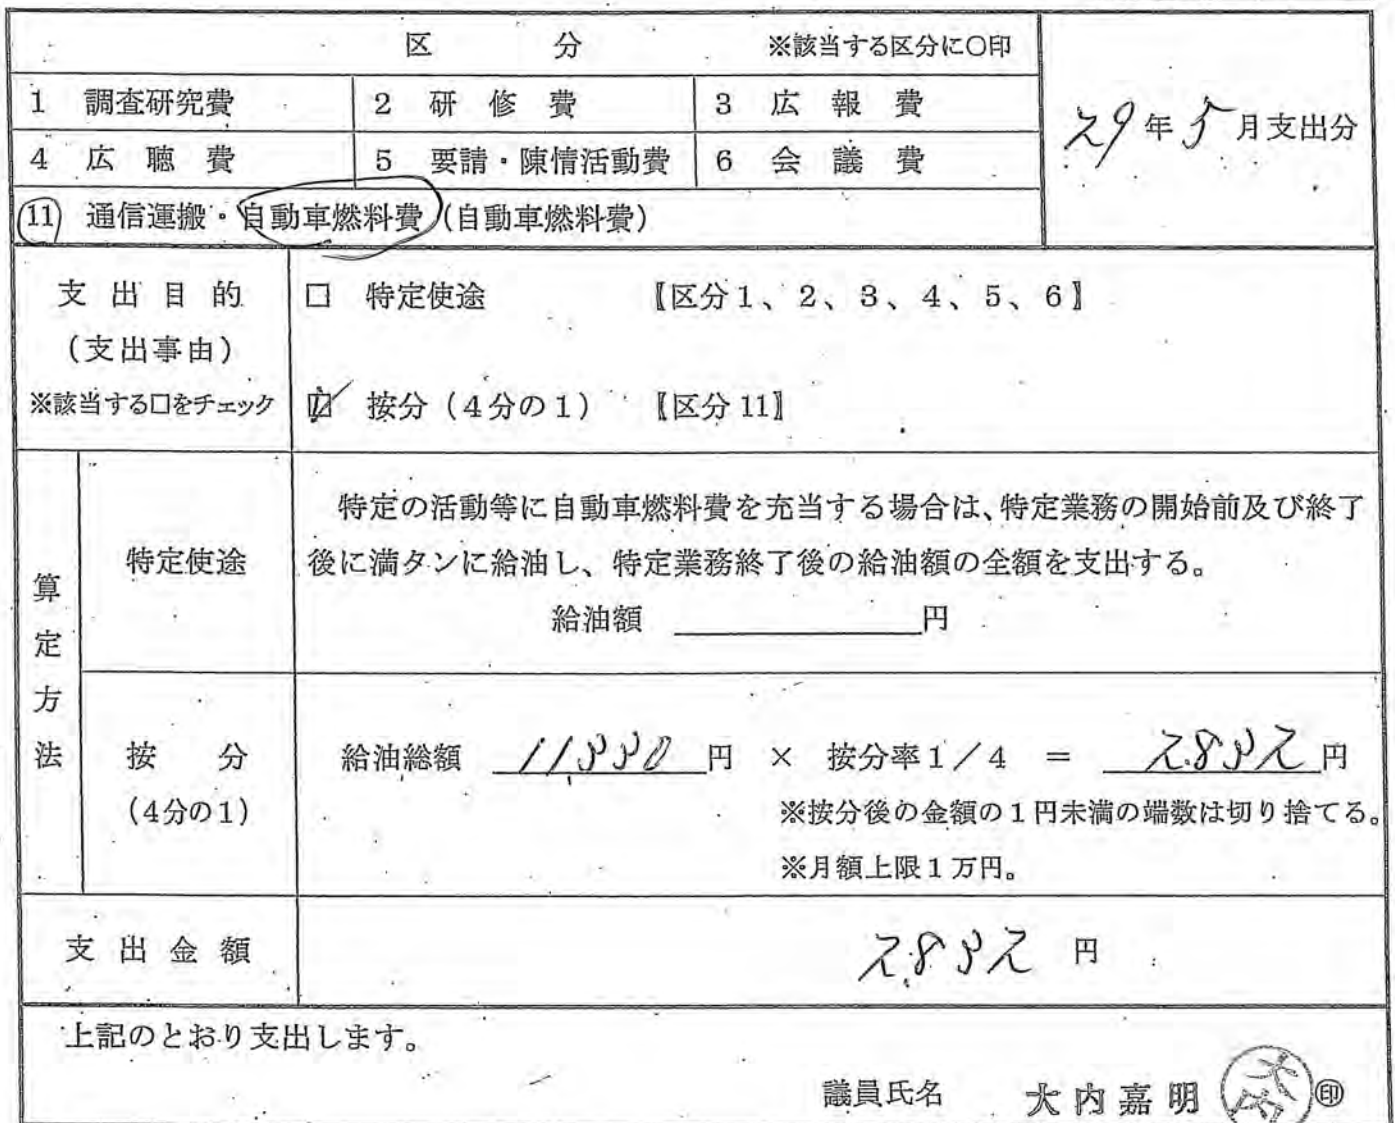 区 分 ※該当する区分に○印
1 調査研究費 2 研修費 3 広報費
29年5月支出分
4 広聴費 5 要請・陳情活動費 6 会議費
11 通信運搬・自動車燃料費(自動車燃料費)
支出目的
(支出事由)
※該当する□をチェック
□ 特定使途 【区分1、2、3、4、5、6】
☑ 按分(4分の1) 【区分11】
算定方法
特定使途
特定の活動等に自動車燃料費を充当する場合は、特定業務の開始前及び終了
後に満タンに給油し、特定業務終了後の給油額の全額を支出する。
給油額 円
按分
(4分の1)
給油総額 11,330円 × 按分率1/4 = 2,832円
※按分後の金額の1円未満の端数は切り捨てる。
※月額上限1万円。
支出金額 2,832円
上記のとおり支出します。
議員氏名 大内嘉明 ㊞